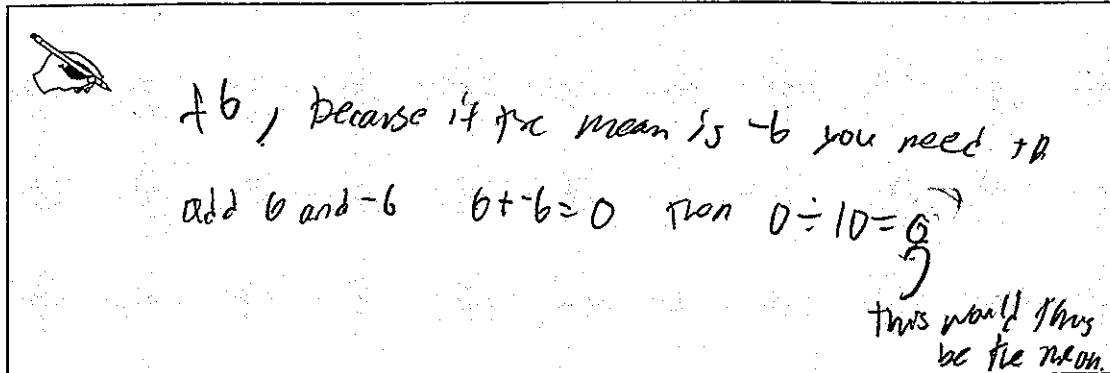 +6, because if the mean is -6 you need to
add 6 and -6 6+-6=0 then 0÷10=0
this would thus
be the mean.